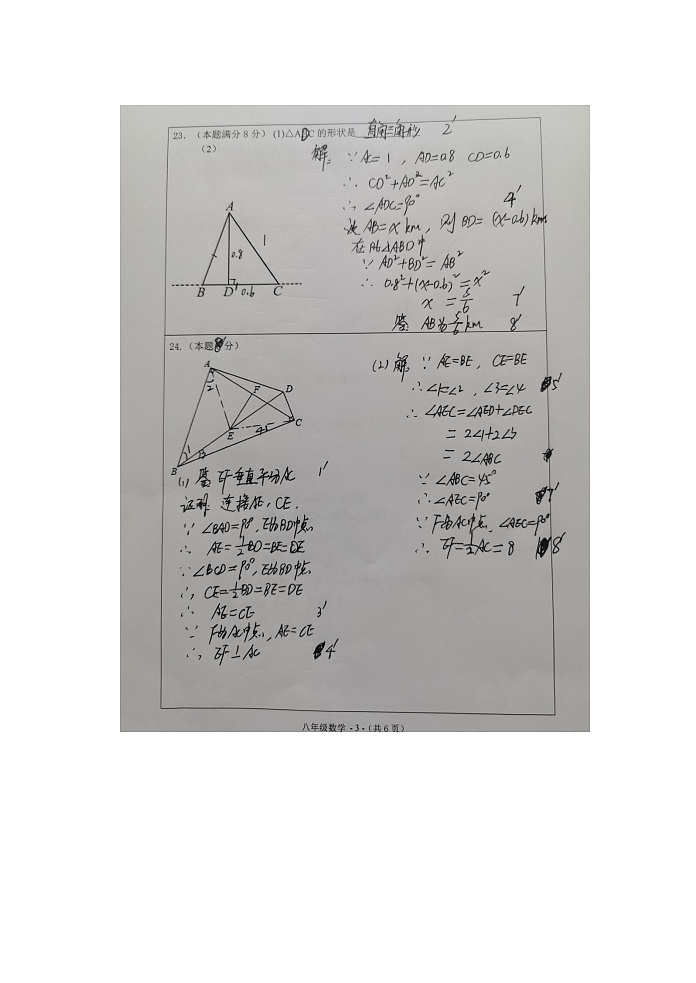 23. （本题满分 8 分） (1)△ADC 的形状是 直角三角形 2'
（2）
解: ∵ AC=1 , AD=0.8 CD=0.6
∴ CD²+AD²=AC²
∴ ∠ADC=90° 4'
设 AB=x km , 则 BD=(x-0.6)km
在Rt△ABD中
∵ AD²+BD²=AB²
∴ 0.8²+(x-0.6)²=x²
x = 5/6 7'
答: AB为5/6 km 8'
A
1
0.8
B D 0.6 C
24.（本题8分）
A
2
F D
C
E 45
1 3
B
(1) 答 EF垂直平分AC 1'
证明: 连接AE, CE.
∵ ∠BAD=90°, E为BD中点
∴ AE=1/2BD=BE=DE
∵ ∠BCD=90°, E为BD中点
∴ CE=1/2BD=BE=DE
∴ AE=CE 3'
∵ F为AC中点, AE=CE
∴ EF⊥AC 4'
(2) 解: ∵ AE=BE, CE=BE
∴ ∠1=∠2 , ∠3=∠4 5'
∴ ∠AEC=∠AED+∠DEC
= 2∠1+2∠3
= 2∠ABC
∵ ∠ABC=45°
∴ ∠AEC=90° 7'
∵ F为AC中点, ∠AEC=90°
∴ EF=1/2AC=8 8'
八年级数学 - 3 -（共 6 页）